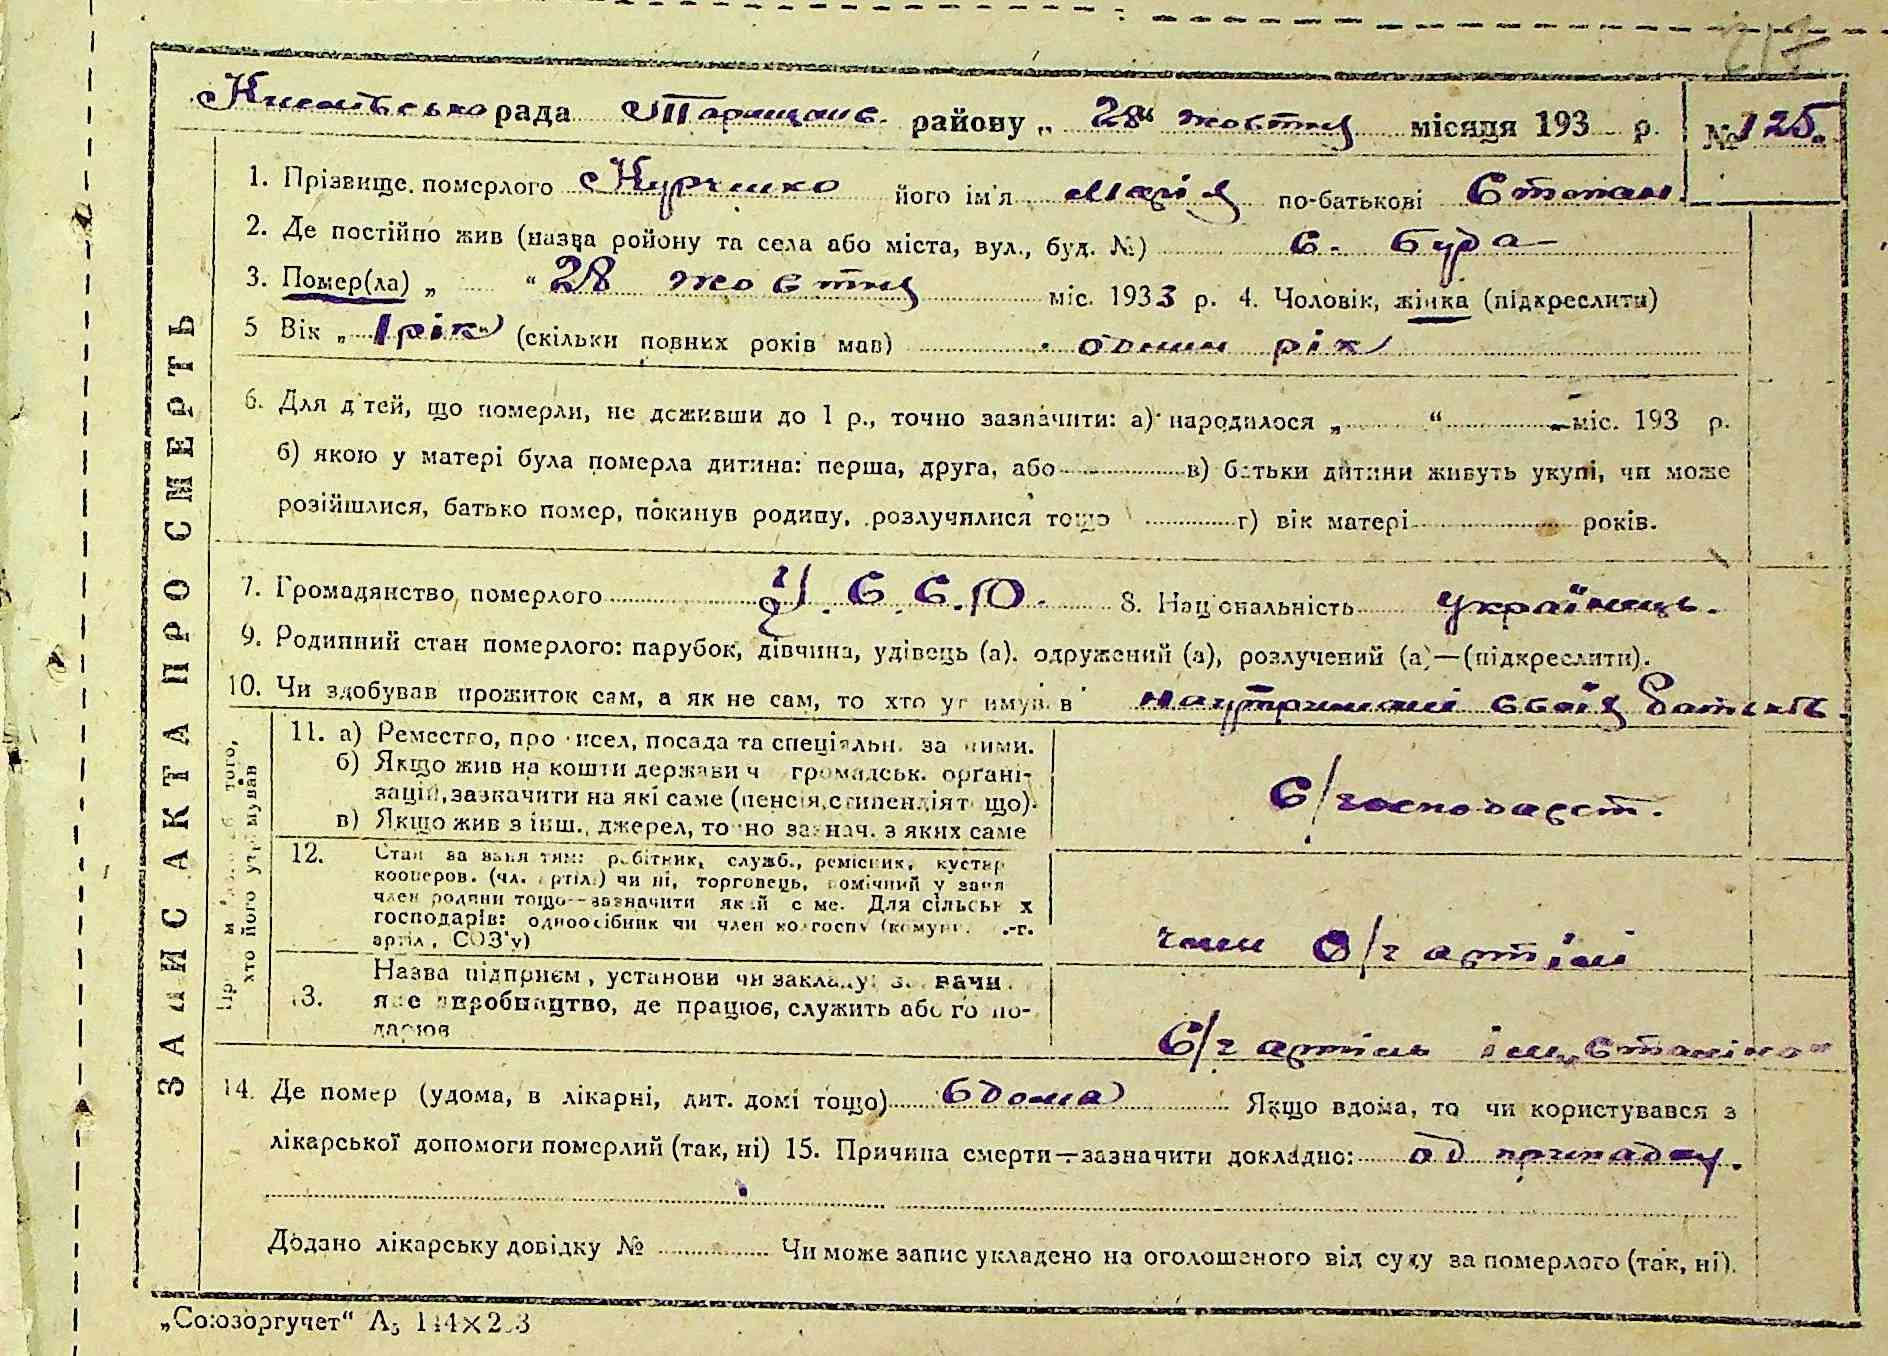 рада Таращанс. району „ 28 “ жовтня місяця 193 р. № 125.
1. Прізвище померлого його ім'я Марія по-батькові Степан.
2. Де постійно жив (назва району та села або міста, вул., буд. №) с. Буда
3. Помер(ла) „ “ 28 жовтня міс. 1933 р. 4. Чоловік, жінка (підкреслити)
5 Вік „ 1 рік “ (скільки повних років мав) один рік
6. Для дітей, що померли, не доживши до 1 р., точно зазначити: а) народилося „ “ міс. 193 р.
б) якою у матері була померла дитина: перша, друга, або в) батьки дитини живуть укупі, чи може
розійшлися, батько помер, покинув родину, розлучилися тощо г) вік матері років.
7. Громадянство померлого У.С.С.Р. 8. Національність українець.
9. Родинний стан померлого: парубок, дівчина, удівець (а), одружений (а), розлучений (а)—(підкреслити).
10. Чи здобував прожиток сам, а як не сам, то хто утримував на утриманні своїх батьків.
ЗАПИС АКТА ПРО СМЕРТЬ
хто його утримував
11. а) Ремество, промисел, посада та спеціальн. за ними.
б) Якщо жив на кошти держави ч громадськ. органі-
зацій, зазначити на які саме (пенсія, стипендія т що).
в) Якщо жив з інш., джерел, точно зазнач. з яких саме
с/господарст.
12. Стан за заняттям: робітник, служб., ремісник, кустар
кооперов. (чл. артіл.) чи ні, торговець, помічний у заня
член родини тощо—зазначити який саме. Для сільських
господарів: одноосібник чи член колгоспу (комуни, .-г.
артіл., СОЗ'у)
член с/г артілі
13. Назва підприєм, установи чи закладу
яке виробництво, де працює, служить або госпо-
дарює
с/г артіль ім. „Сталіна“
14. Де помер (удома, в лікарні, дит. домі тощо) вдома Якщо вдома, то чи користувався з
лікарської допомоги померлий (так, ні) 15. Причина смерти—зазначити докладно: од припадку.
Додано лікарську довідку № Чи може запис укладено на оголошеного від суду за померлого (так, ні).
„Союзоргучет“ А5